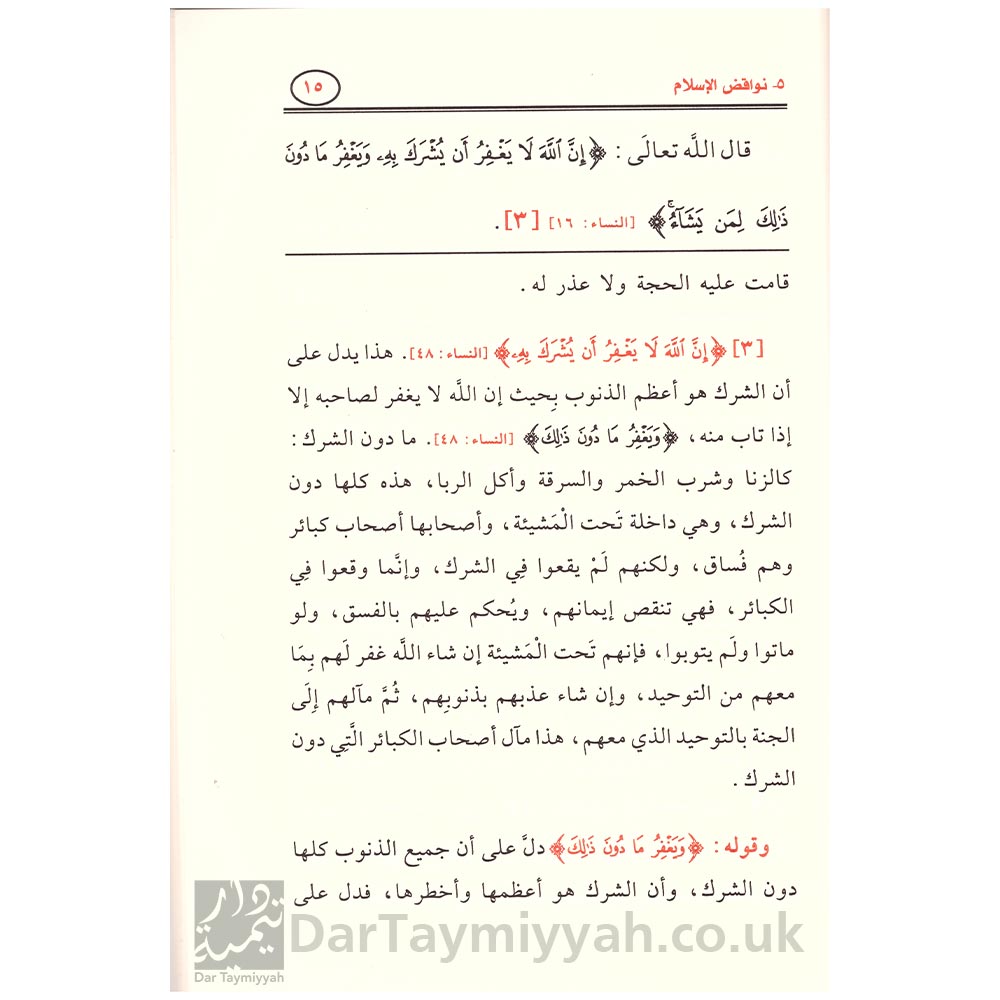 ٥- نواقض الإسلام
١٥
قال اللَّه تعالَى : ﴿إِنَّ ٱللَّهَ لَا يَغْفِرُ أَن يُشْرَكَ بِهِۦ وَيَغْفِرُ مَا دُونَ
ذَٰلِكَ لِمَن يَشَآءُۚ﴾ [النساء: ١٦] [٣].
قامت عليه الحجة ولا عذر له .
[٣] ﴿إِنَّ ٱللَّهَ لَا يَغْفِرُ أَن يُشْرَكَ بِهِۦ﴾ [النساء: ٤٨]. هذا يدل على
أن الشرك هو أعظم الذنوب بِحيث إن اللَّه لا يغفر لصاحبه إلا
إذا تاب منه، ﴿وَيَغْفِرُ مَا دُونَ ذَٰلِكَ﴾ [النساء: ٤٨]. ما دون الشرك:
كالزنا وشرب الخمر والسرقة وأكل الربا، هذه كلها دون
الشرك، وهي داخلة تَحت الْمَشيئة، وأصحابها أصحاب كبائر
وهم فُساق، ولكنهم لَمْ يقعوا فِي الشرك، وإنَّما وقعوا فِي
الكبائر، فهي تنقص إيمانهم، ويُحكم عليهم بالفسق، ولو
ماتوا ولَم يتوبوا، فإنهم تَحت الْمَشيئة إن شاء اللَّه غفر لَهم بِمَا
معهم من التوحيد، وإن شاء عذبهم بذنوبِهم، ثُمَّ مآلهم إِلَى
الجنة بالتوحيد الذي معهم، هذا مآل أصحاب الكبائر الَّتِي دون
الشرك .
وقوله: ﴿وَيَغْفِرُ مَا دُونَ ذَٰلِكَ﴾ دلَّ على أن جميع الذنوب كلها
دون الشرك، وأن الشرك هو أعظمها وأخطرها، فدل على
دار تيمية
Dar Taymiyyah
DarTaymiyyah.co.uk